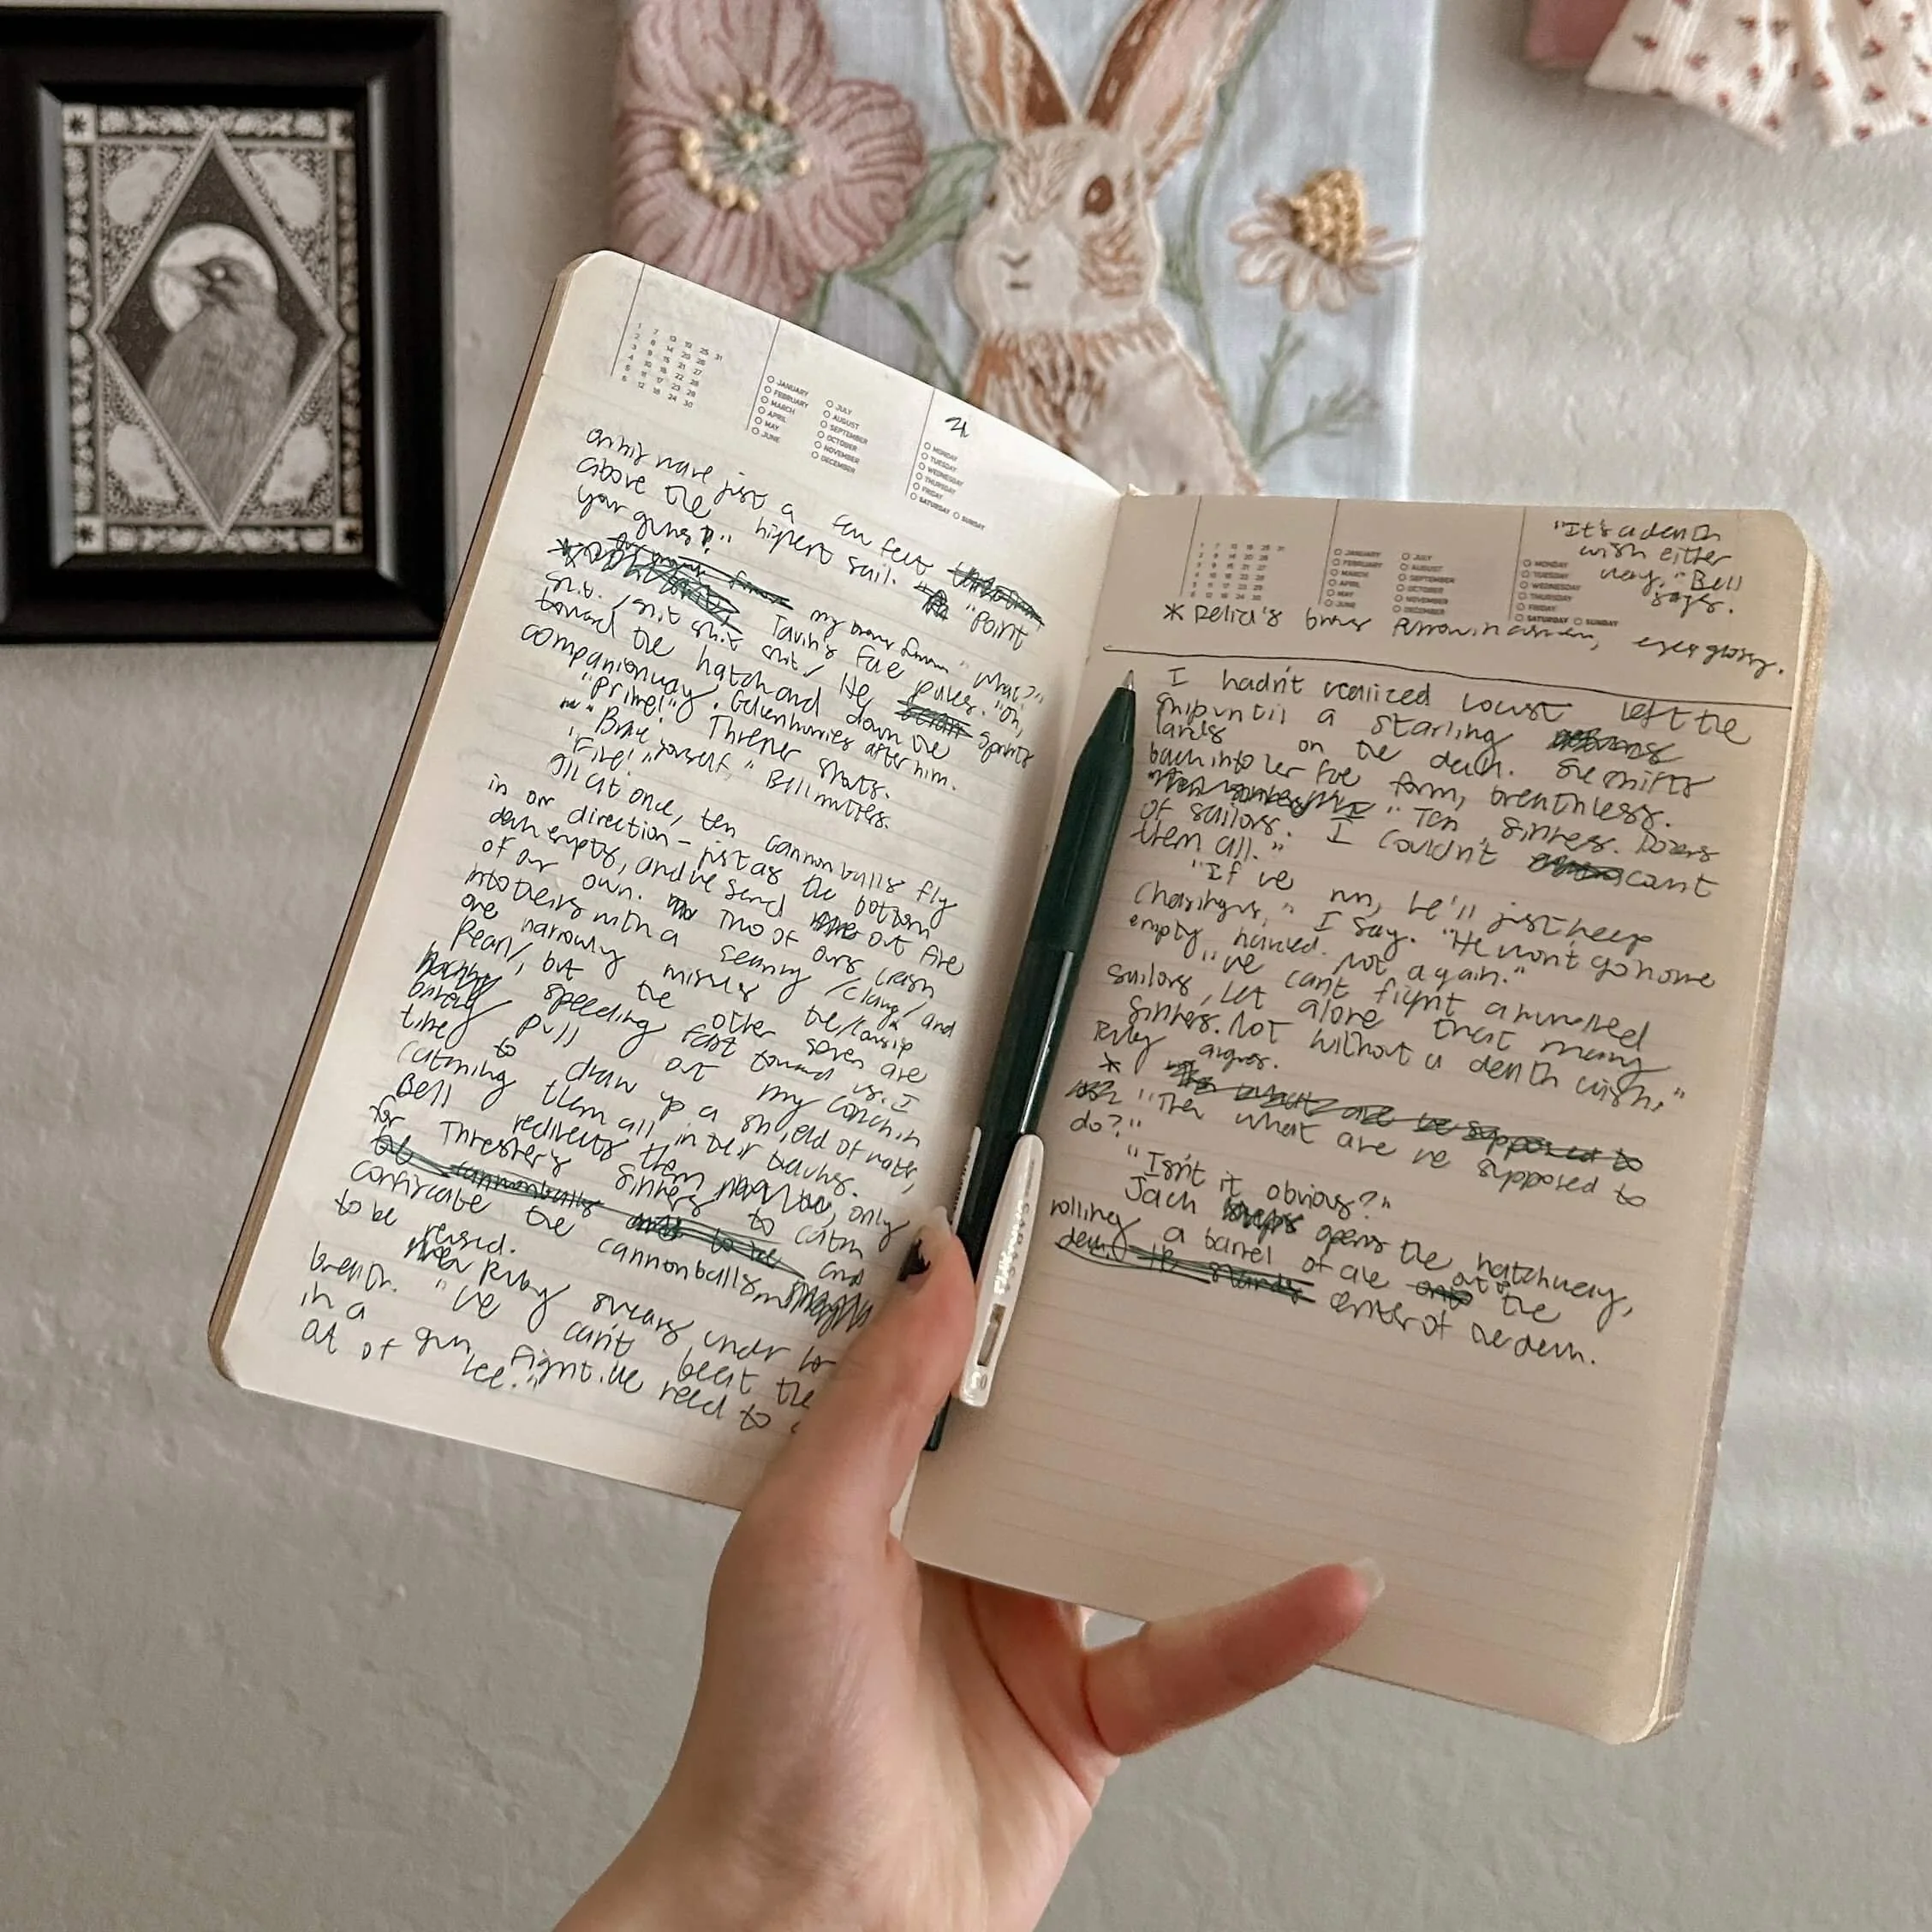 1 7 13 19 25 31
2 8 14 20 26
3 9 15 21 27
4 10 16 22 28
5 11 17 23 29
6 12 18 24 30
JANUARY JULY
FEBRUARY AUGUST
MARCH SEPTEMBER
APRIL OCTOBER
MAY NOVEMBER
JUNE DECEMBER
MONDAY
TUESDAY
WEDNESDAY
THURSDAY
FRIDAY
SATURDAY SUNDAY
just a few feet
above the highest sail. "Point
your guns!"
my brows furrow. "What?"
Tavin's face pales. "Oh,
shit. /shit shit shit/ He sprints
toward the hatch and down the
companionway. hurries after him.
"Prime!" Thresher shouts.
"Brace yourself," Bell mutters.
"Fire!"
all at once, ten cannonballs fly
in our direction – just as the bottom
deck empty, and we send out five
of our own. Two of ours crash
into theirs with a /clang/ and
one narrowly misses the /Gossip
Pearl/, but the other seven are
speeding fast toward us. I
pull out my conch in
time to draw up a shield of water,
catching them all in their tracks.
Bell redirects them, only
for Thresher's sinkers to catch
and
confiscate the cannonballs
to be reused.
Ruby swears under her
breath. "We can't beat the
in a gun fight. We need to
"It's a death
wish either
way," Bell
says.
1 7 13 19 25 31
2 8 14 20 26
3 9 15 21 27
4 10 16 22 28
5 11 17 23 29
6 12 18 24 30
JANUARY JULY
FEBRUARY AUGUST
MARCH SEPTEMBER
APRIL OCTOBER
MAY NOVEMBER
JUNE DECEMBER
MONDAY
TUESDAY
WEDNESDAY
THURSDAY
FRIDAY
SATURDAY SUNDAY
* Delia's brows furrow in eyes glossy.
I hadn't realized Locust left the
ship until a starling
lands on the deck. She shifts
back into her fae form, breathless.
"Ten sinkers. Dozens
of sailors. I couldn't count
them all."
"If we run, he'll just keep
chasing us," I say. "He won't go home
empty handed. Not again."
"We can't fight a hundred
sailors, let alone that many
sinkers. Not without a death wish,"
Ruby argues.
* "Then what are we supposed to
do?"
"Isn't it obvious?"
Jack opens the hatchway,
rolling a barrel of ale out to the
center of the deck.